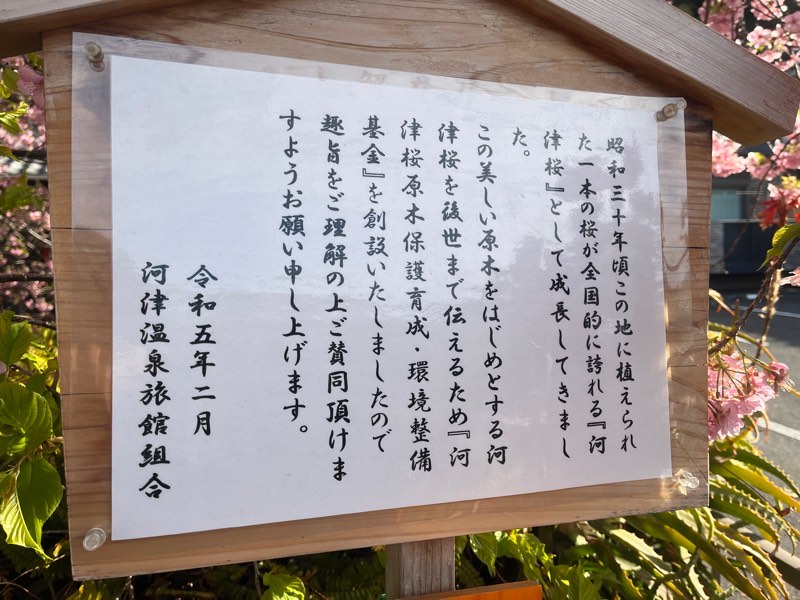 昭和三十年頃この地に植えられ
た一本の桜が全国的に誇れる『河
津桜』として成長してきまし
た。
この美しい原木をはじめとする河
津桜を後世まで伝えるため『河
津桜原木保護育成・環境整備
基金』を創設いたしましたので
趣旨をご理解の上ご賛同頂けま
すようお願い申し上げます。
令和五年二月
河津温泉旅館組合